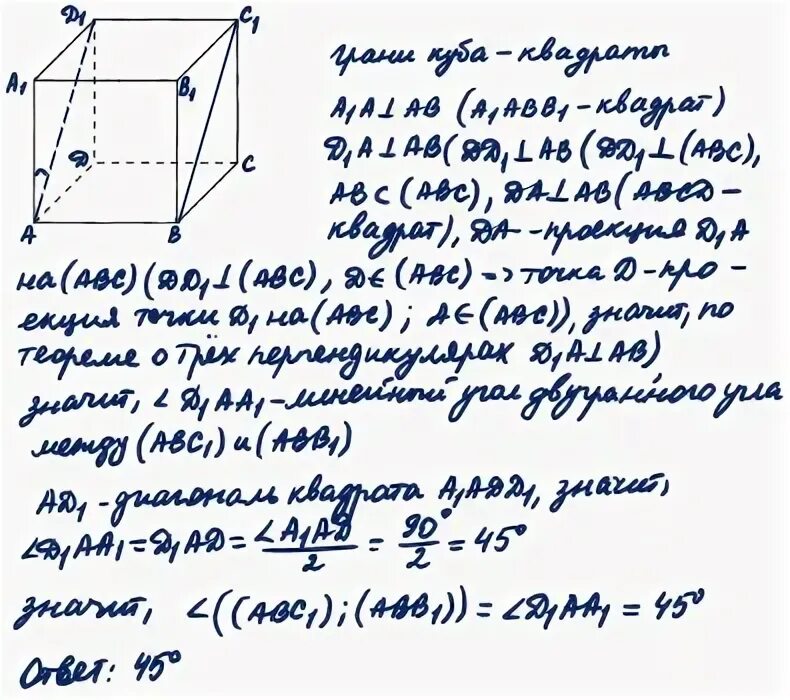 D₁ C₁
A₁ B₁
D C
A B
грани куба – квадраты
A₁A⊥AB (A₁ABB₁ – квадрат)
D₁A⊥AB (DD₁⊥AB (DD₁⊥(ABC),
AB⊂(ABC), DA⊥AB (ABCD –
квадрат), DA – проекция D₁A
на (ABC) (DD₁⊥(ABC), D∈(ABC) => точка D – про-
екция точки D₁ на (ABC); A∈(ABC)), значит, по
теореме о трёх перпендикулярах D₁A⊥AB)
значит, ∠D₁AA₁ – линейный угол двугранного угла
между (ABC₁) и (ABB₁)
AD₁ – диагональ квадрата A₁ADD₁, значит,
∠D₁AA₁ = D₁AD = ∠A₁AD/2 = 90°/2 = 45°
значит, ∠((ABC₁); (ABB₁)) = ∠D₁AA₁ = 45°
Ответ: 45°